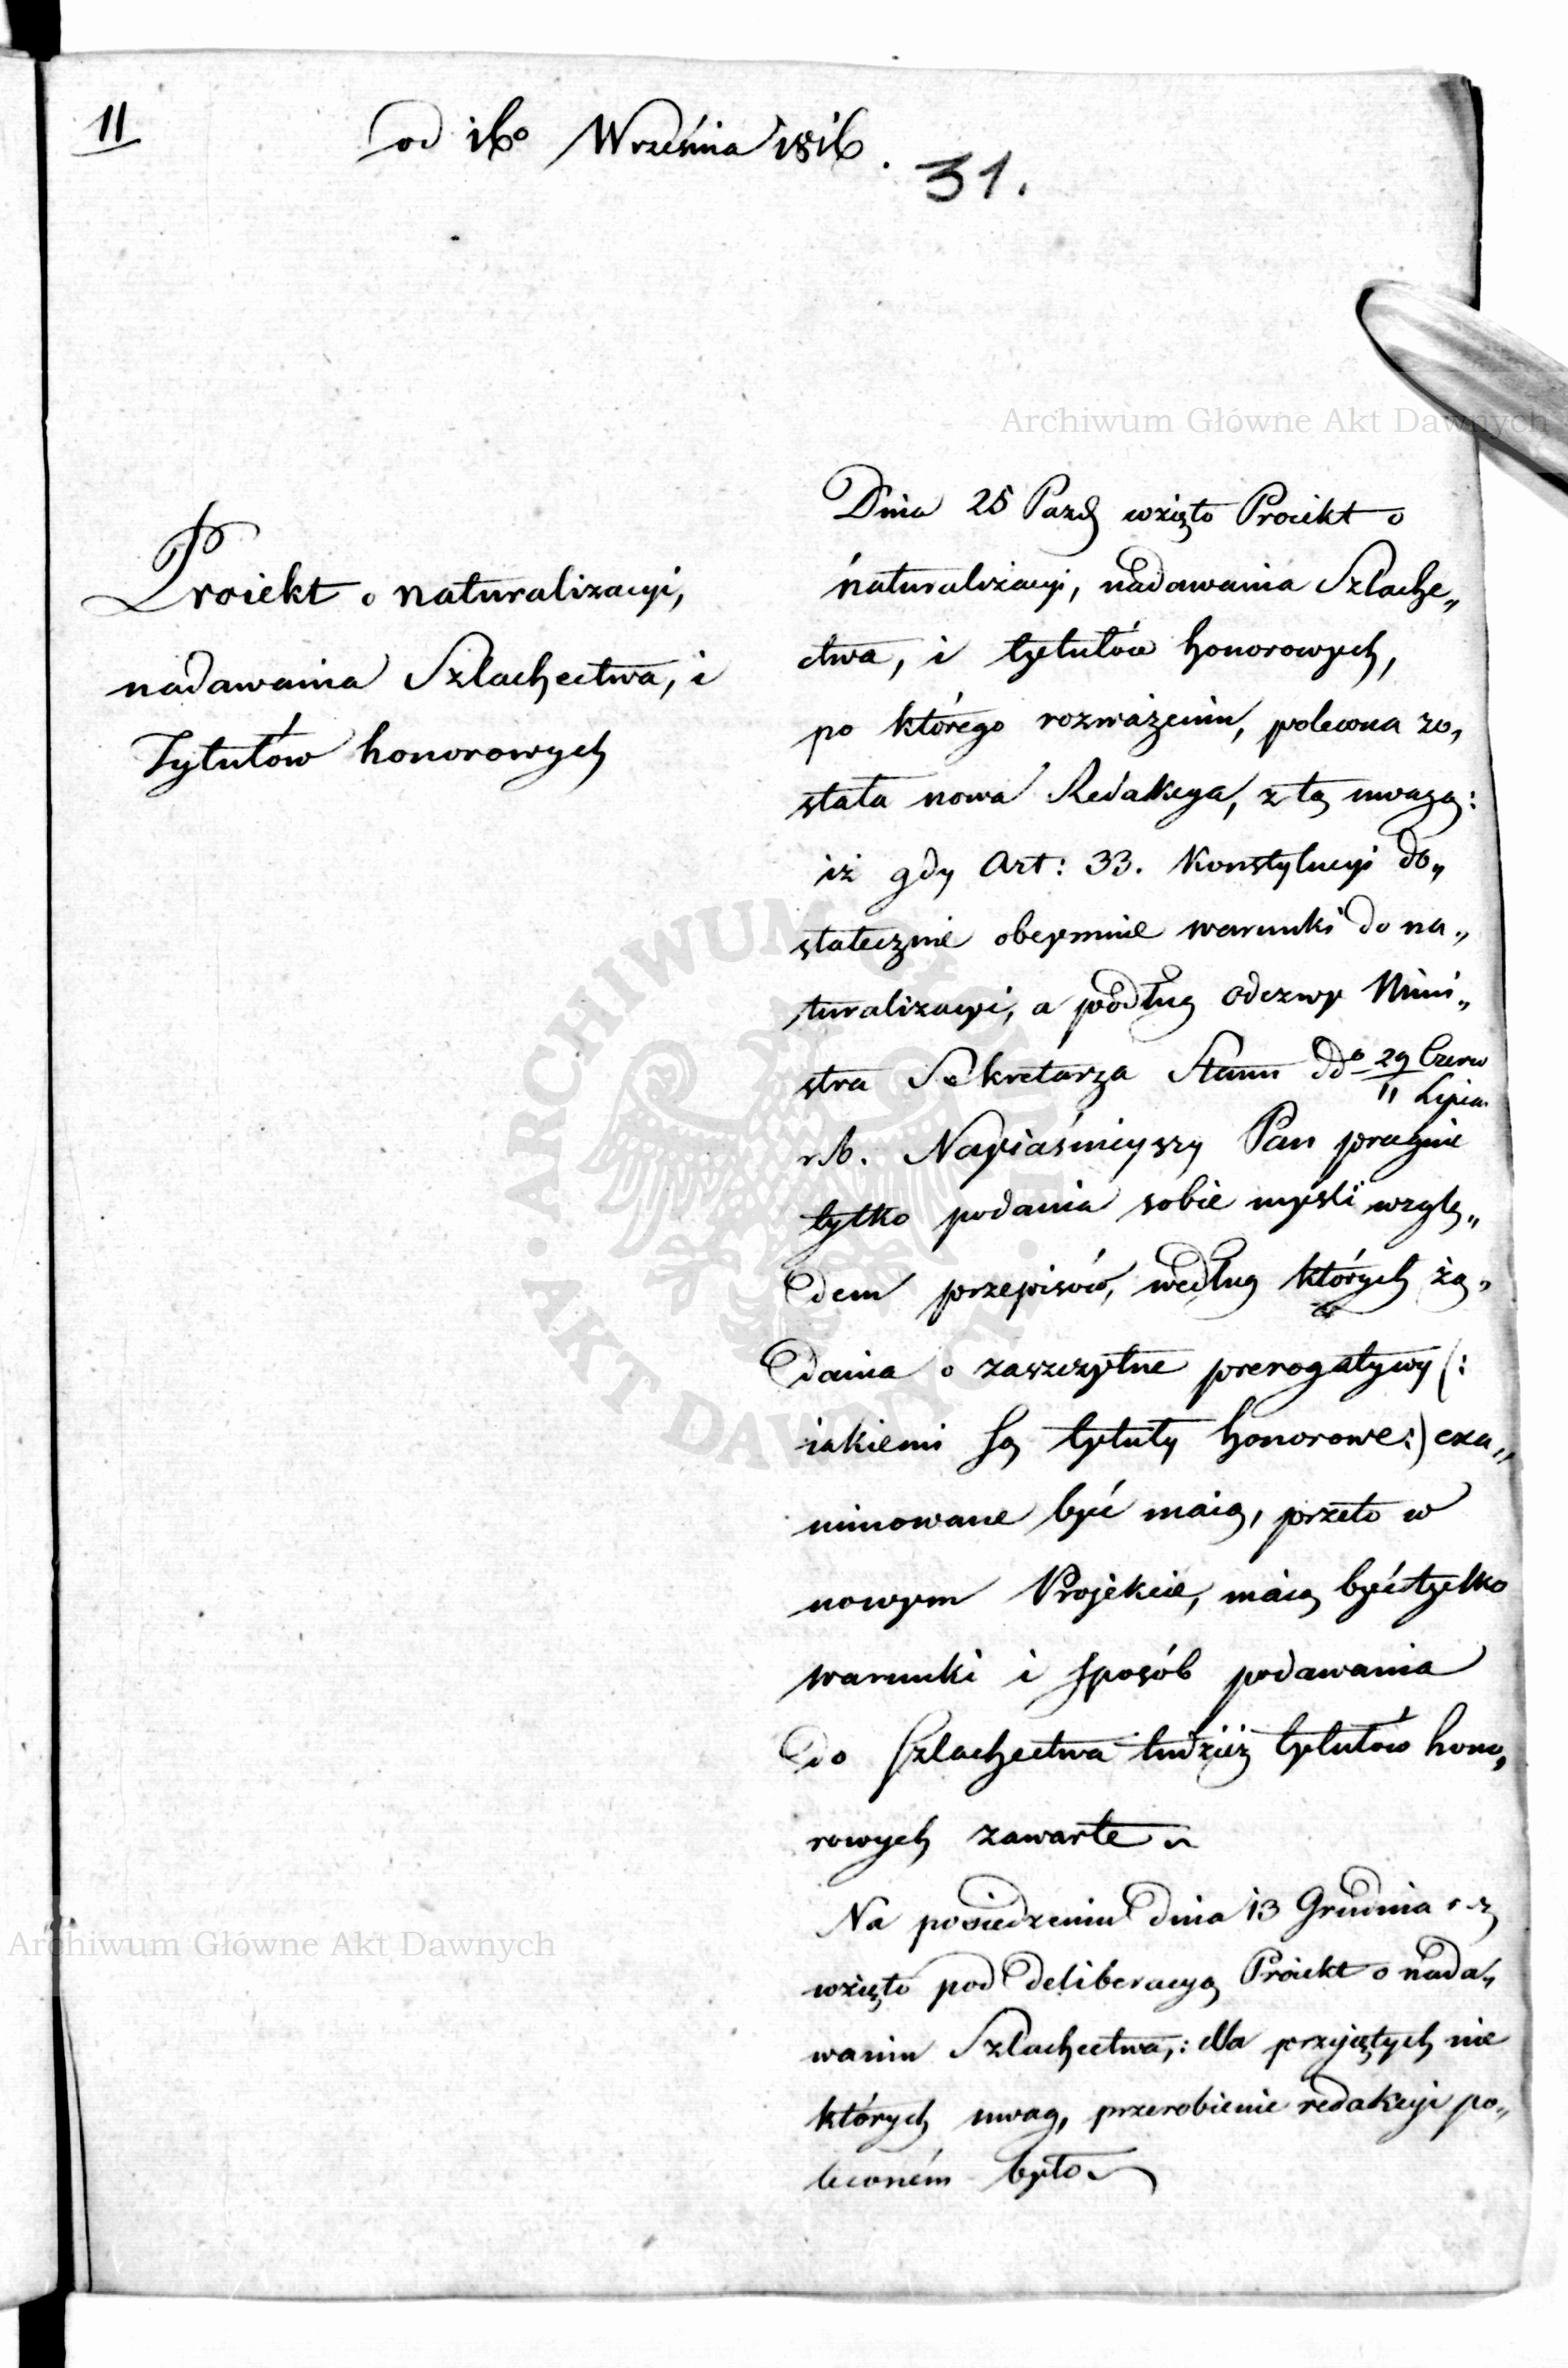 11
od 16º Września 1816.
31.
Archiwum Główne Akt Dawnych
Proiekt o naturalizacyi,
nadawania Szlachectwa, i
Tytułów honorowych
Dnia 25 Pazd wzięto Proiekt o
naturalizacyi, nadawania Szlache„
ctwa, i tytułów honorowych,
po którego rozważeniu, polecona zo„
stała nowa Redakcya, z tą uwagą:
iż gdy Art: 33. Konstytucyi do„
statecznie obeymuie warunki do na„
turalizacyi, a podług odezwy Mini„
stra Sekretarza Stanu ddº 29 Czerw
11 Lipca
r.b. Nayiaśnieyszy Pan pragnie
tylko podania sobie myśli wzglę„
dem przepisów, według których żą„
dania o zaszczytne prerogatywy (:
iakiemi są tytuły honorowe:) exa„
minowane być maią, przeto w
nowym Projekcie, maią być tylko
warunki i sposób podawania
do szlachectwa tudzież tytułów hono„
rowych zawarte
Na posiedzeniu dnia 13 Grudnia
wzięto pod deliberacyą Proiekt o nada„
waniu Szlachectwa,: dla przyiętych nie
których uwag, przerobienie redakcyi po„
leconém było
ARCHIWUM GŁÓWNE AKT DAWNYCH
Archiwum Główne Akt Dawnych